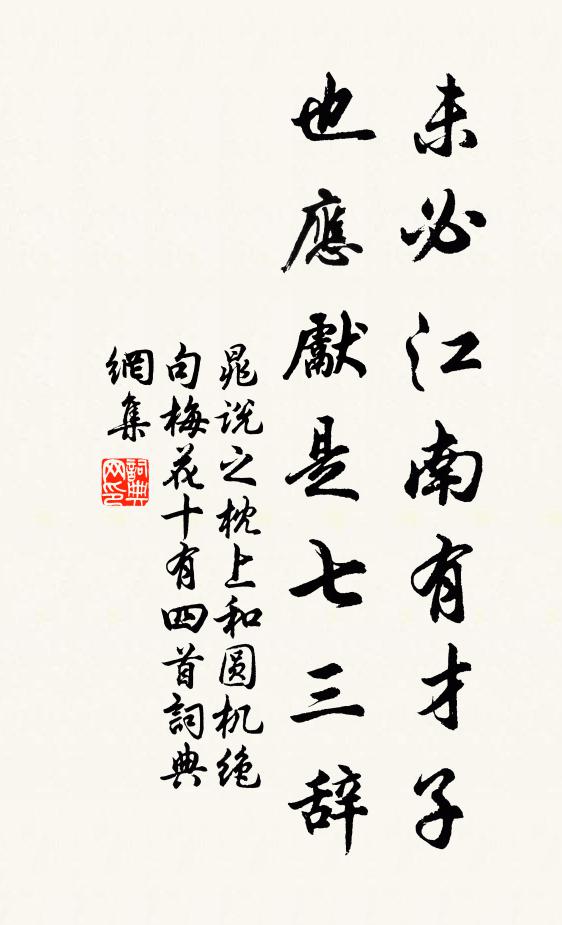 未必江南有才子
也應獻是七三辞
晁说之枕上和圆机绝
句梅花十有四首詞典
網集
詞典
网印